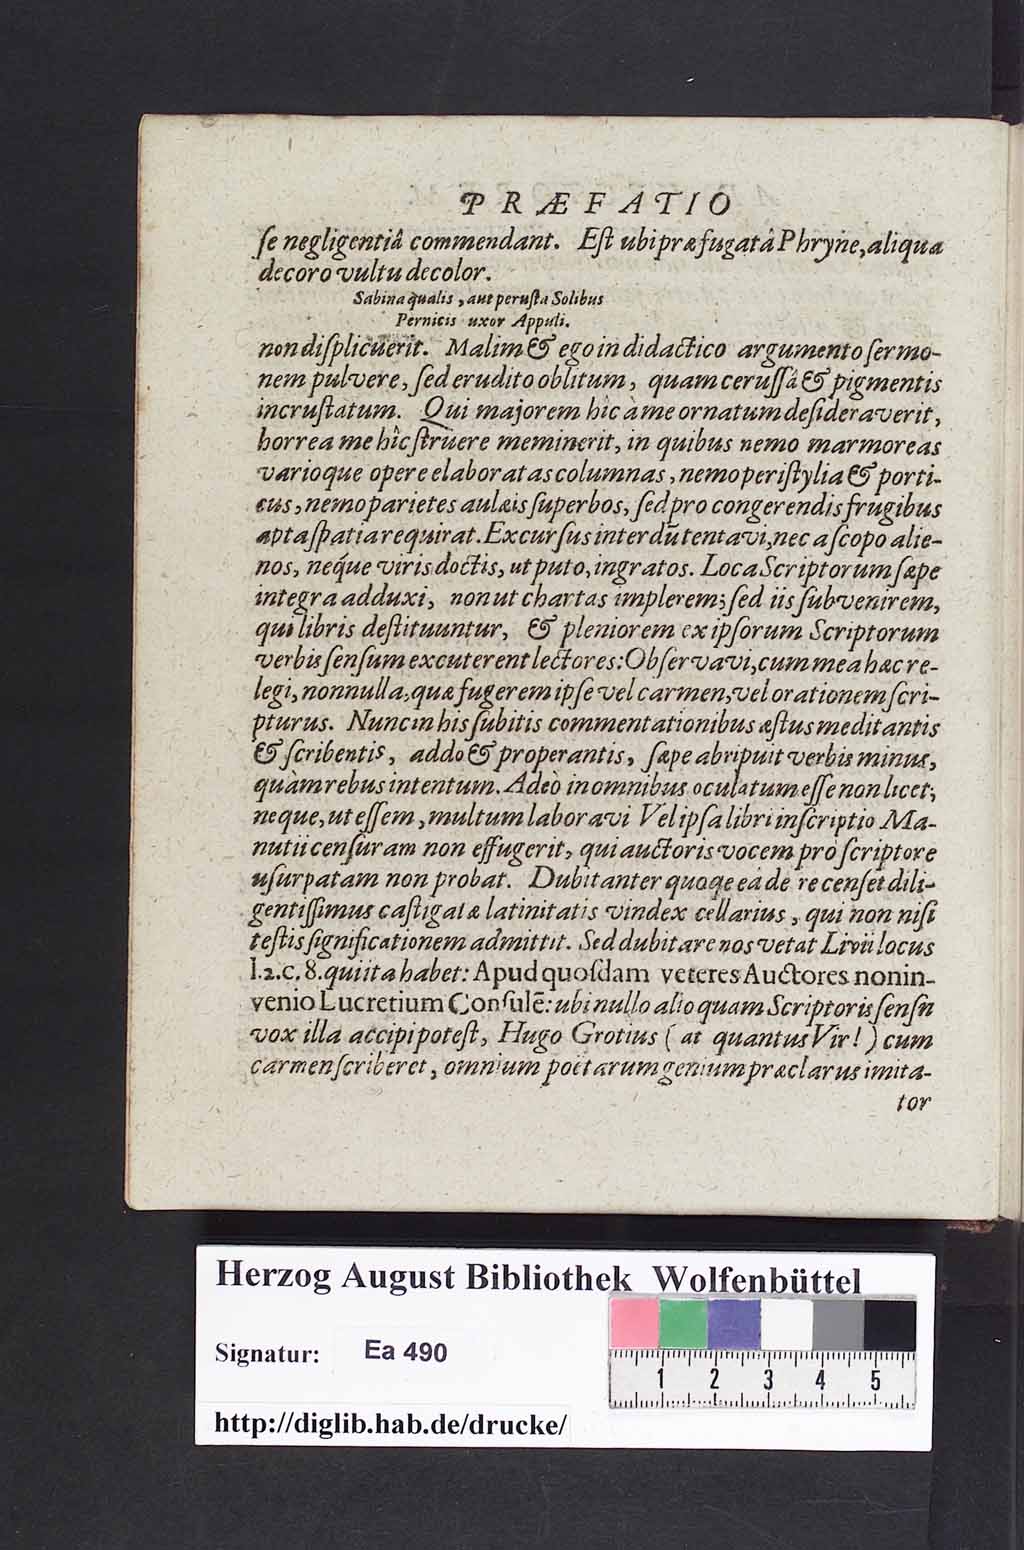 PRÆFATIO
ſe negligentiâ commendant. Eſt ubi præfugatâ Phryne, aliqua
decoro vultu decolor.
Sabina qualis, aut peruſta Solibus
Pernicis uxor Appuli.
non diſplicuerit. Malim & ego in didactico argumento ſermo-
nem pulvere, ſed erudito oblitum, quam ceruſſâ & pigmentis
incruſtatum. Qui majorem hîc à me ornatum deſideraverit,
horrea me hîc ſtruere meminerit, in quibus nemo marmoreas
varioque opere elaboratas columnas, nemo periſtylia & porti-
cus, nemo parietes aulæis ſuperbos, ſed pro congerendis frugibus
apta ſpatia requirat. Excurſus interdũ tentavi, nec a ſcopo alie-
nos, neque viris doctis, ut puto, ingratos. Loca Scriptorum ſæpe
integra adduxi, non ut chartas implerem; ſed iis ſubvenirem,
qui libris deſtituuntur, & pleniorem ex ipſorum Scriptorum
verbis ſenſum excuterent lectores: Obſervavi, cum mea hæc re-
legi, nonnulla, quæ fugerem ipſe vel carmen, vel orationem ſcri-
pturus. Nunc in his ſubitis commentationibus æſtus meditantis
& ſcribentis, addo & properantis, ſæpe abripuit verbis minus,
quàm rebus intentum. Adeò in omnibus oculatum eſſe non licet;
neque, ut eſſem, multum laboravi Vel ipſa libri inſcriptio Ma-
nutii cenſuram non effugerit, qui auctoris vocem pro ſcriptore
uſurpatam non probat. Dubitanter quoqe eâ de re cenſet dili-
gentiſſimus caſtigatæ latinitatis vindex cellarius, qui non niſi
teſtis ſignificationem admittit. Sed dubitare nos vetat Livii locus
l.2.c.8. qui ita habet: Apud quoſdam veteres Auctores non in-
venio Lucretium Conſulẽ: ubi nullo alio quam Scriptoris ſenſu
vox illa accipi poteſt, Hugo Grotius (at quantus Vir!) cum
carmen ſcriberet, omnium poëtarum genium præclarus imita-
tor
Herzog August Bibliothek Wolfenbüttel
Signatur: Ea 490
1 2 3 4 5
http://diglib.hab.de/drucke/